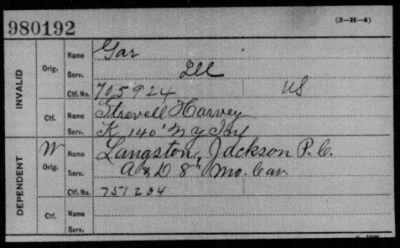 980192
(3-H-4)
INVALID
Orig.
Name Gar
Serv. Ill
Ctf. No. 705924 US
Ctf.
Name Strevell Harvey
Serv. K 140' N Y Inf
DEPENDENT
W
Orig.
Name Langston, Jackson P. C.
Serv. A & D 8" Mo. Cav
Ctf. No. 751234
Ctf.
Name
Serv.